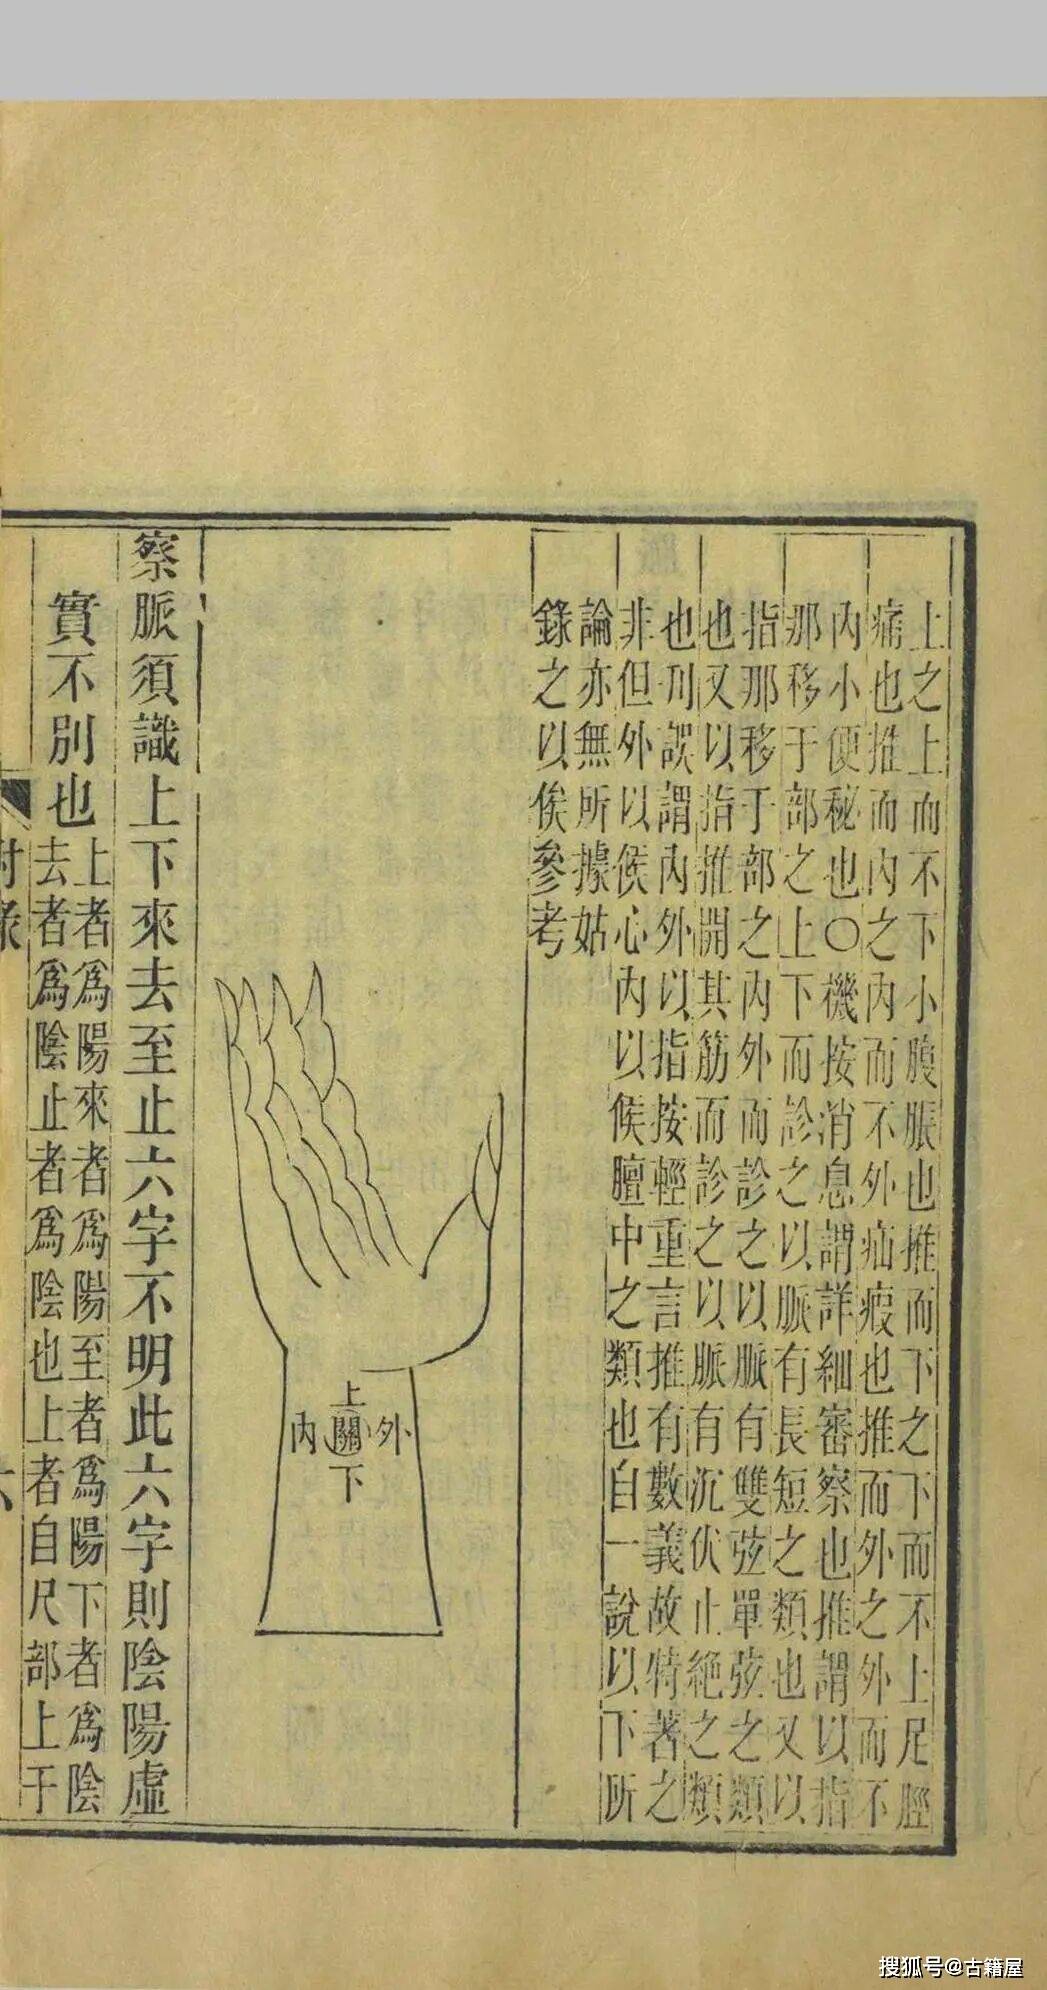 上之上而不下小腹脹也推而下之下而不上足脛
痛也推而內之內而不外疝瘕也推而外之外而不
內小便秘也〇機按消息謂詳細審察也推謂以指
那移于部之上下而診之以脈有長短之類也又以
指那移于部之內外而診之以脈有雙弦單弦之類
也又以指推開其筋而診之以脈有沉伏止絕之類
也刋誤謂內外以指按輕重言推有數義故特著之
非但外以候心內以候膻中之類也自一說以下所
論亦無所據姑
錄之以俟參考
上
內關外
下
察脈須識上下來去至止六字不明此六字則陰陽虛
實不別也
上者爲陽來者爲陽至者爲陽下者爲陰
去者爲陰止者爲陰也上者自尺部上于
六
搜狐号@古籍屋